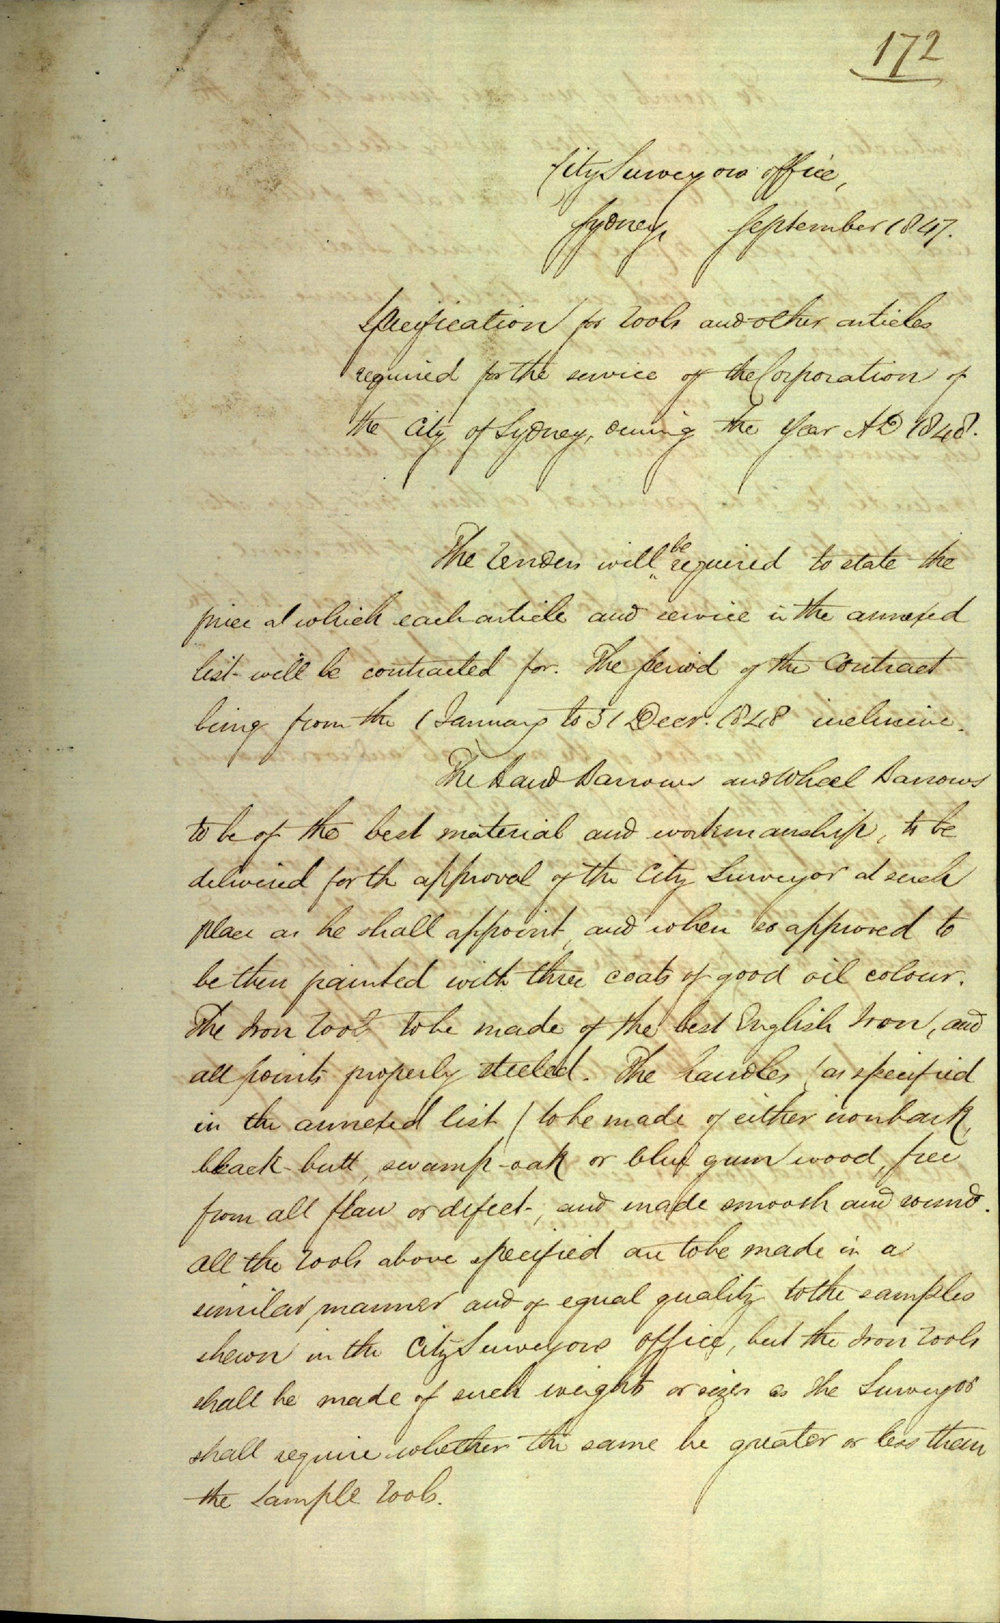 172
City Surveyors office,
Sydney September 1847.
Specification for Tools and other articles
required for the service of the Corporation of
the City of Sydney, during the Year AD 1848.
The Tenders will be required to state the
price at which each article and service in the annexed
list will be contracted for. The period of the Contract
being from the 1 January to 31 Decr. 1848 inclusive.
The Hand Barrows and Wheel Barrows
to be of the best material and workmanship, to be
delivered for th approval of the City Surveyor at such
place as he shall appoint, and when so approved to
be then painted with three coats of good oil colour.
The Iron Tools to be made of the best English Iron, and
all points properly steeled. The handles (as specified
in the annexed list) to be made of either ironbark,
black-butt, swamp-oak or blue gum wood, free
from all flaw or defect, and made smooth and round.
All the Tools above specified are to be made in a
similar manner and of equal quality to the samples
shewn in the City Surveyors office, but the Iron Tools
shall be made of such weights or sizes as the Surveyor
shall require whether the same be greater or less than
the Sample Tools.